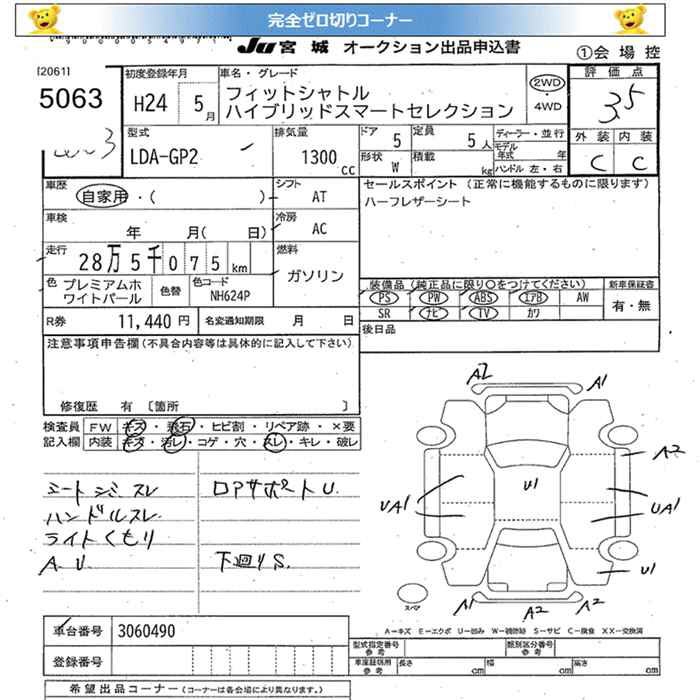 完全ゼロ切りコーナー
JU 宮城 オークション出品申込書
①会場控
[2061]
5063
初度登録年月
H24 5月
車名・グレード
フィットシャトル
ハイブリッドスマートセレクション
2WD
・
4WD
評価点
3.5
外装 内装
C C
型式
LDA-GP2
排気量
1300 cc
ドア 5
定員 5人
形状 W
積載 kg
ディーラー・並行
モデル年式 年
ハンドル 左・右
車歴
自家用・( )
シフト AT
車検
年 月( 日)
冷房 AC
走行
28万5千075km
燃料
ガソリン
セールスポイント (正常に機能するものに限ります)
ハーフレザーシート
色 プレミアムホワイトパール
色替
色コード NH624P
装備品 (純正品に限り〇をつけてください)
新車保証書
PS PW ABS エアB AW
SR ナビ TV カワ
有・無
R券 11,440円
名変通知期限 月 日
後日品
注意事項申告欄(不具合内容等は具体的に記入して下さい)
修復歴 有 〔箇所 〕
検査員記入欄
FW キズ・飛石・ヒビ割・リペア跡・×要
内装 キズ・汚レ・コゲ・穴・スレ・キレ・破レ
シートジ.スレ
ハンドルスレ
ライトくもり
A.U
ロアサポートU.
下廻りS.
A2
A1
A2
U1
UA1
UA1
U1
A1
A2
A2
スペア
A－キズ E－エクボ U－凹み W－補修跡 S－サビ C－腐食 XX－交換済
車台番号 3060490
登録番号
型式指定番号 参考
類別区分番号 参考
車庫証明用 参考
長さ cm 幅 cm 高さ cm
希望出品コーナー (コーナーは各会場により異なります。)